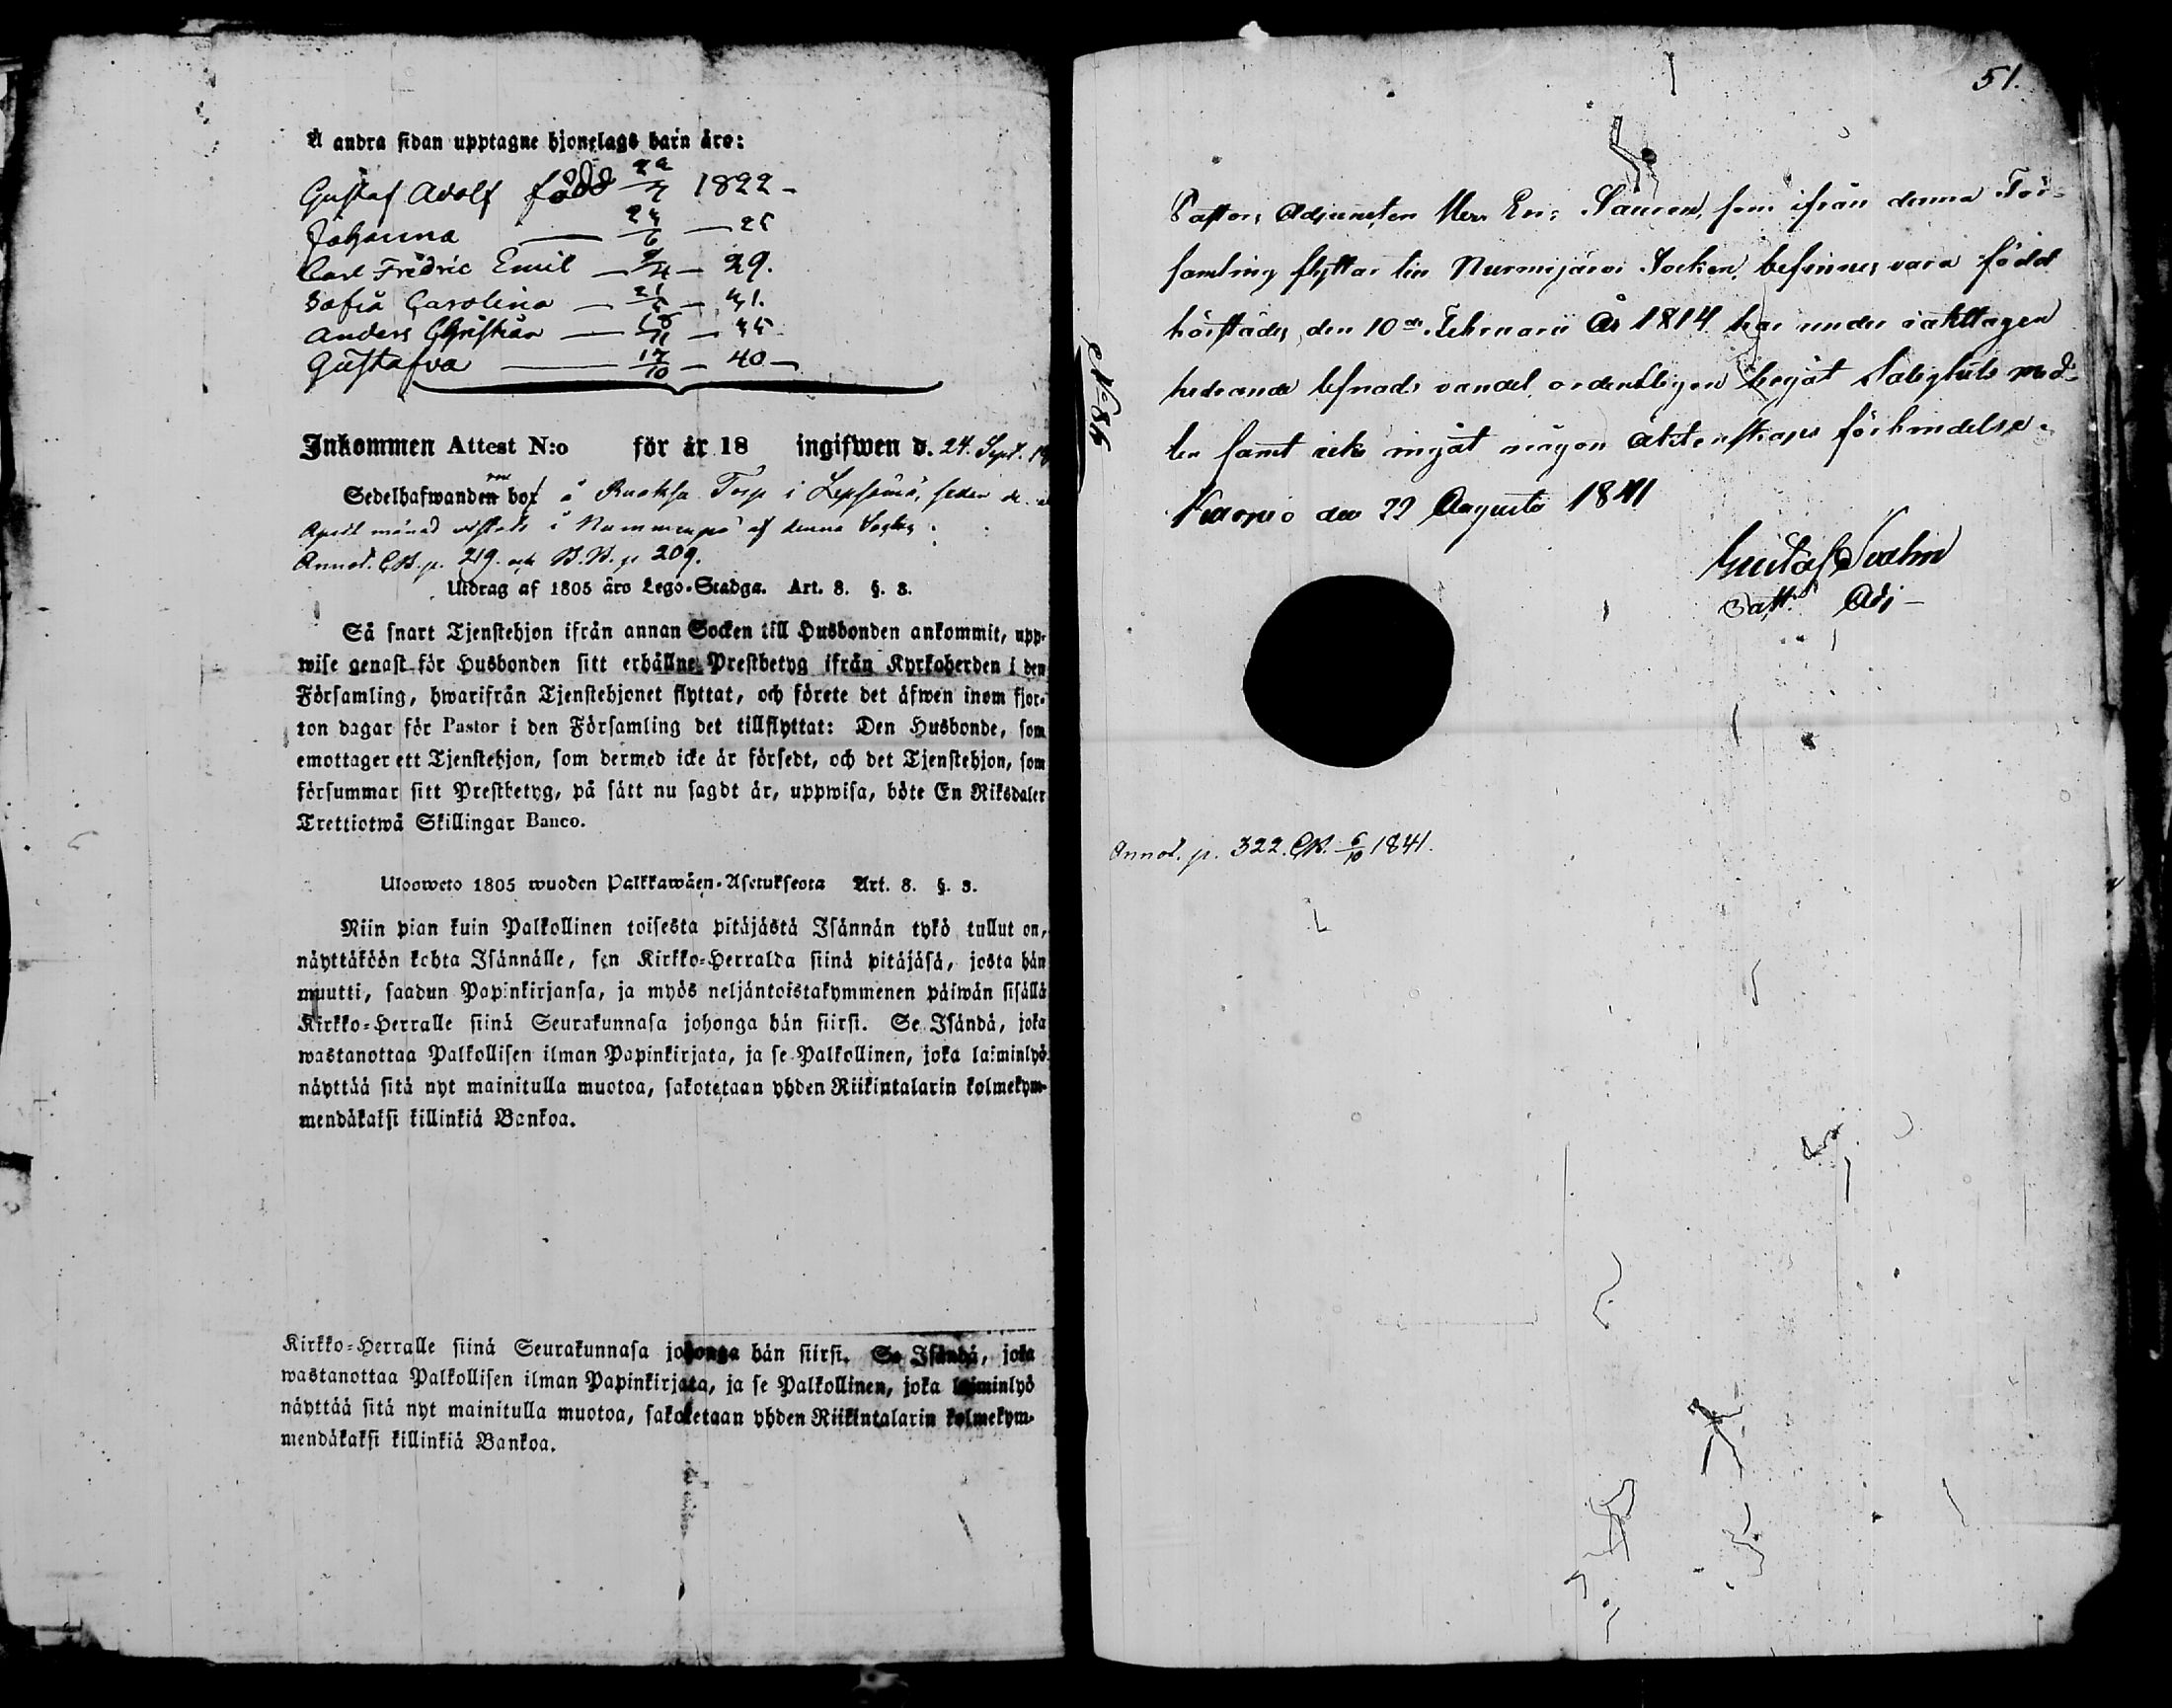 Å andra sidan upptagne hjonelags barn äro:
Gustaf Adolf född 1822 –
Johanna — 6 — 25
Carl Fredric Emil — 4 — 29.
Sofia Carolina — 31.
Anders Christian — 11 — 35
Gustafva — 17/10 — 40 —
Inkommen Attest N:o för år 18 ingifwen d. 24. Sept.
Sedelhafwanden bor å Ruohsa Torp i Lepsämä, sedan
April månad vistats i Nummenpä af denna
Annot. C.B. p. 219. och B.B. p. 209.
Utdrag af 1805 års Lego-Stadga. Art. 8. §. 3.
Så snart Tjenstehjon ifrån annan Socken till Husbonden ankommit, upp-
wise genast för Husbonden sitt erhållne Prestbetyg ifrån Kyrkoherden i den
Församling, hwarifrån Tjenstehjonet flyttat, och förete det äfwen inom fjor-
ton dagar för Pastor i den Församling det tillflyttat: Den Husbonde, som
emottager ett Tjenstehjon, som dermed icke är försedt, och det Tjenstehjon, som
försummar sitt Prestbetyg, på sätt nu sagdt är, uppwisa, böte En Riksdaler
Trettiotwå Skillingar Banco.
Ulosweto 1805 wuoden Palkkawäen-Asetuksesta Art. 8. §. 3.
Niin pian kuin Palkollinen toisesta pitäjästä Isännän tykö tullut on,
näyttäköön kohta Isännälle, sen Kirkko-Herralda siinä pitäjäsä, josta hän
muutti, saadun Papinkirjansa, ja myös neljäntoistakymmenen päiwän sisällä
Kirkko-Herralle siinä Seurakunnasa johonga hän siirsi. Se Isändä, joka
wastanottaa Palkollisen ilman Papinkirjata, ja se Palkollinen, joka laiminlyö
näyttää sitä nyt mainitulla muotoa, sakotetaan yhden Riikintalarin kolmekym-
mendäkaksi killinkiä Bankoa.
Kirkko-Herralle siinä Seurakunnasa johonga hän siirsi. Se Isändä, joka
wastanottaa Palkollisen ilman Papinkirjata, ja se Palkollinen, joka laiminlyö
näyttää sitä nyt mainitulla muotoa, sakotetaan yhden Riikintalarin kolmekym-
mendäkaksi killinkiä Bankoa.
51.
Pastors Adjuncten Herr Er: Sauren, som ifrån denna För-
samling flyttar till Nurmijärvi Socken, befinnes vara född
härstädes den 10de Februarii År 1814, har under iakttagen
hedrande lefnads vandel, ordentligen begåt Salighets med-
len samt icke ingåt någon äktenskaps förbindelse.
Kuopio den 22 Augusti 1841
Gustaf
Past: Adj –
No 86
Annot. p. 322. C.B. 6/10 1841.